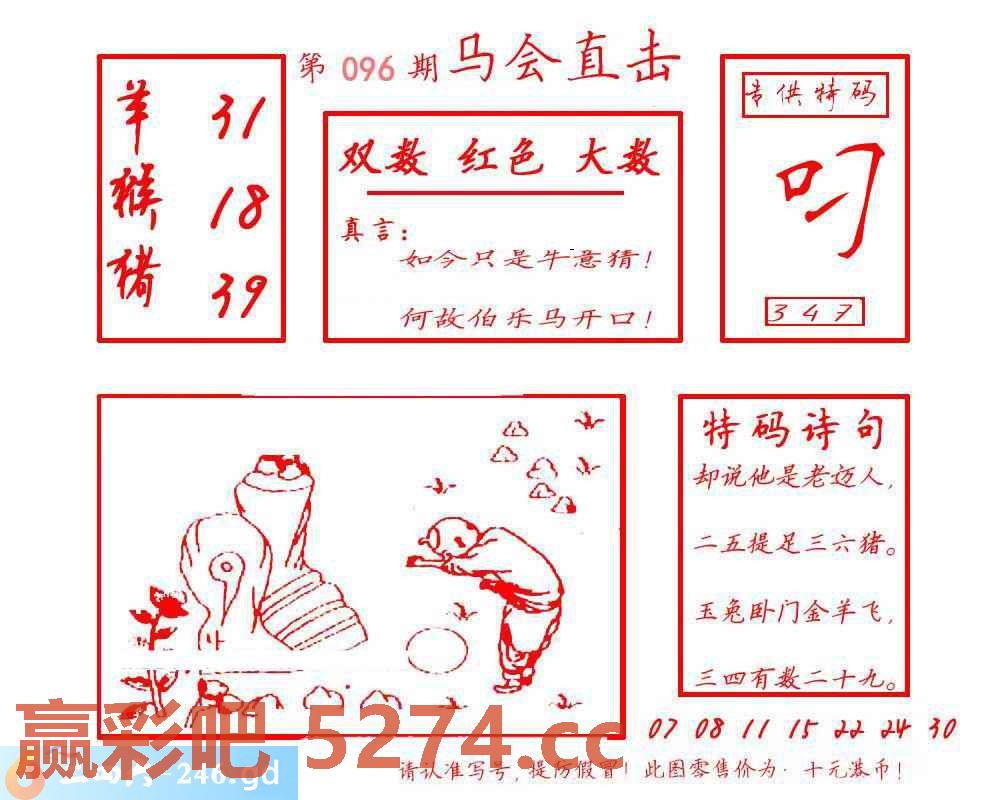 第 096 期 马会直击
羊 31
猴 18
猪 39
双数 红色 大数
真言：
如今只是牛意猜！
何故伯乐马开口！
专供特码
叼
3 4 7
特码诗句
却说他是老迈人，
二五提足三六猪。
玉兔卧门金羊飞，
三四有数二十九。
07 08 11 15 22 24 30
赢彩吧 5274.cc
-246.gd
请认准写号，提防假冒！此图零售价为·十元港币！